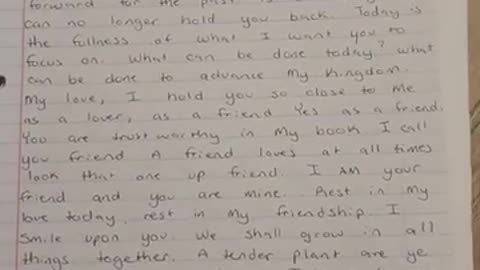 forward for the past is
can no longer hold you back. Today is
the fullness of what I want you to
focus on. What can be done today? What
can be done to advance My Kingdom.
My love, I hold you so close to me
as a lover, as a friend Yes as a friend.
You are trust worthy in my book I call
you friend A friend loves at all times
look that one up friend. I AM your
friend and you are mine. Rest in My
love today, rest in My friendship. I
Smile upon you. We shall grow in all
things together. A tender plant are ye